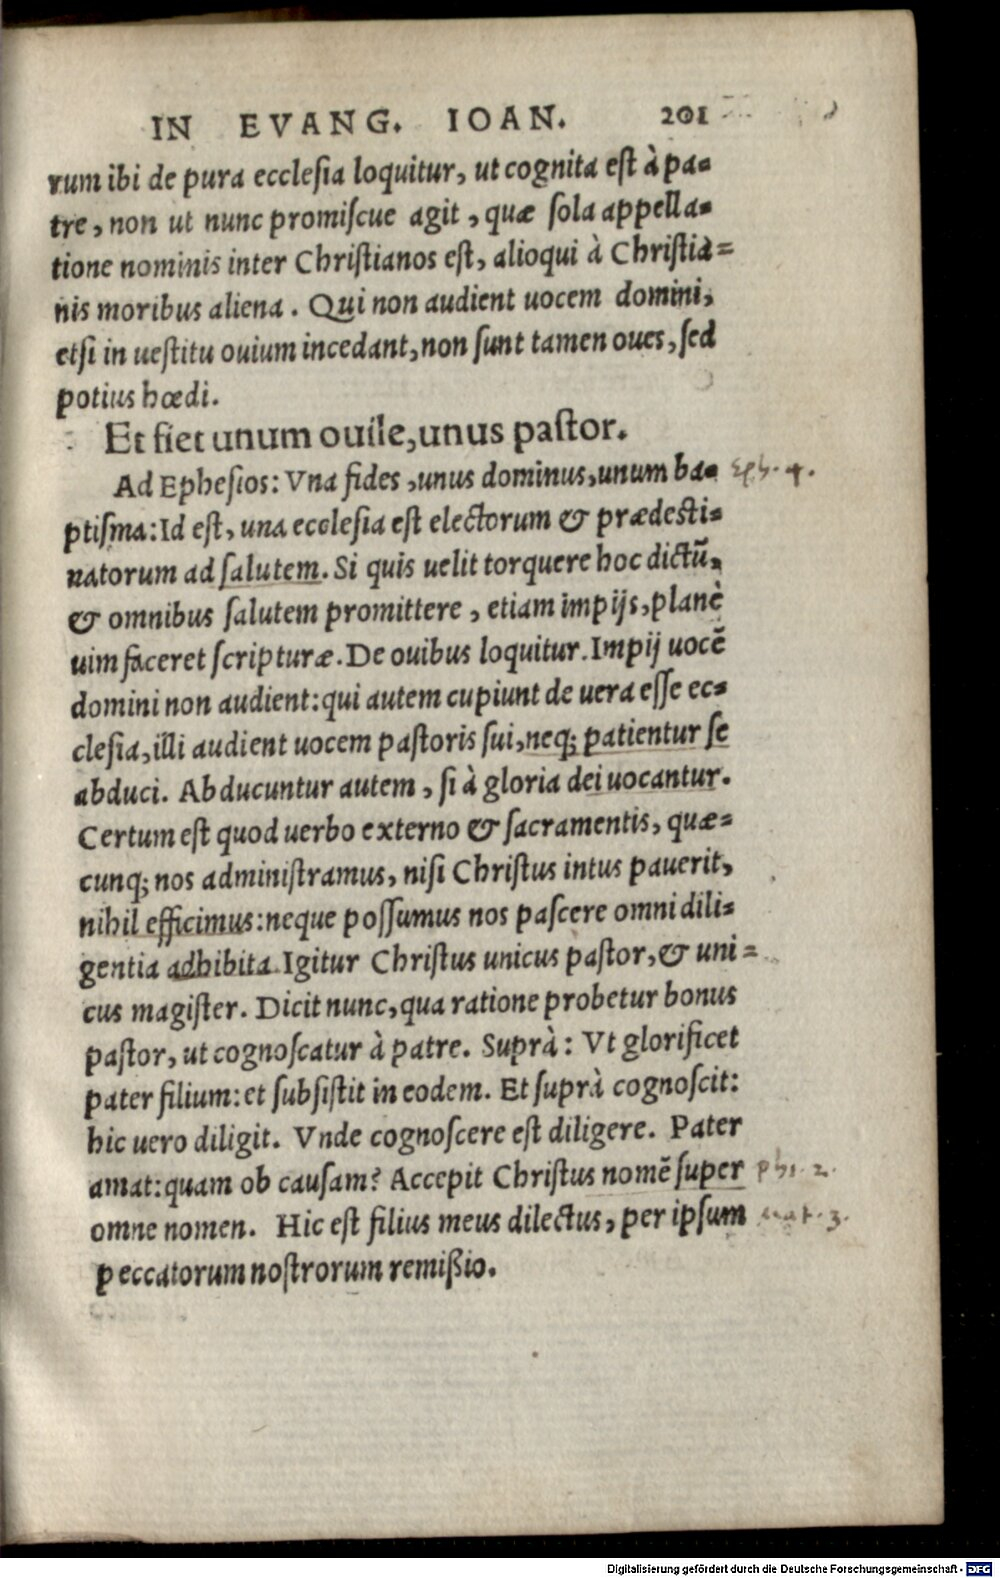 IN EVANG. IOAN. 201
rum ibi de pura ecclesia loquitur, ut cognita est à pa-
tre, non ut nunc promiscue agit, quæ sola appella-
tione nominis inter Christianos est, alioqui à Christia-
nis moribus aliena. Qui non audient uocem domini,
etsi in uestitu ouium incedant, non sunt tamen oues, sed
potius hœdi.
Et fiet unum ouile, unus pastor.
Ad Ephesios: Vna fides, unus dominus, unum ba- Eph. 4.
ptisma: Id est, una ecclesia est electorum & prædesti-
natorum ad salutem. Si quis uelit torquere hoc dictũ,
& omnibus salutem promittere, etiam impijs, planè
uim faceret scripturæ. De ouibus loquitur. Impij uocẽ
domini non audient: qui autem cupiunt de uera esse ec-
clesia, illi audient uocem pastoris sui, neq; patientur se
abduci. Abducuntur autem, si à gloria dei uocantur.
Certum est quod uerbo externo & sacramentis, quæ-
cunq; nos administramus, nisi Christus intus pauerit,
nihil efficimus: neque possumus nos pascere omni dili-
gentia adhibita. Igitur Christus unicus pastor, & uni-
cus magister. Dicit nunc, qua ratione probetur bonus
pastor, ut cognoscatur à patre. Suprà: Vt glorificet
pater filium: et subsistit in eodem. Et suprà cognoscit:
hic uero diligit. Vnde cognoscere est diligere. Pater
amat: quam ob causam? Accepit Christus nomẽ super phi. 2.
omne nomen. Hic est filius meus dilectus, per ipsum Mat. 3.
peccatorum nostrorum remißio.
Digitalisierung gefördert durch die Deutsche Forschungsgemeinschaft - DFG